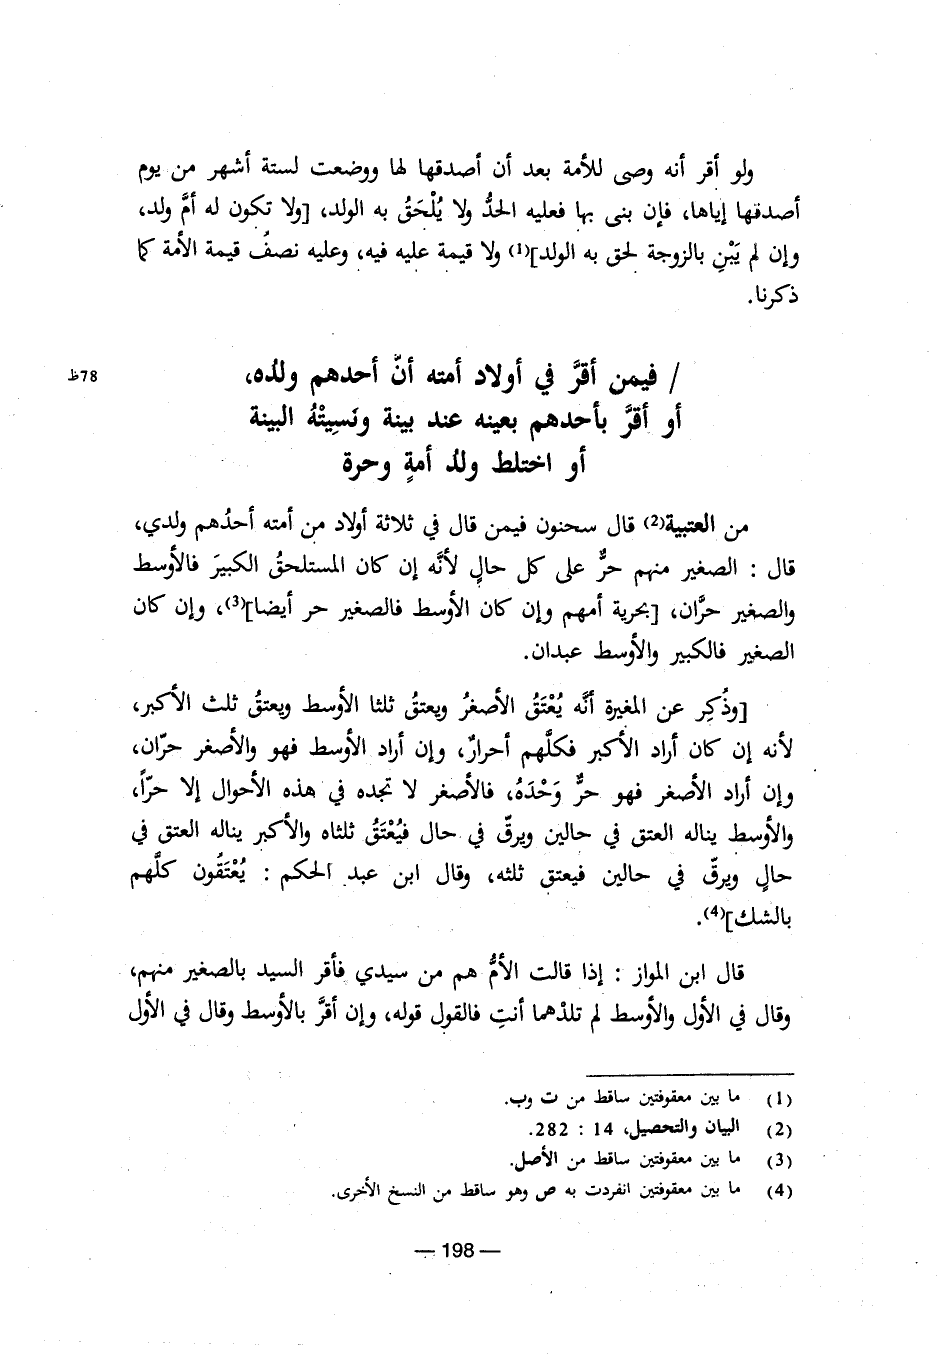 ولو أقر أنه وصى للأمة بعد أن أصدقها لها ووضعت لستة أشهر من يوم
أصدقها إياها، فإن بنى بها فعليه الحدُّ ولا يُلْحَقُ به الولد، [ولا تكون له أمَّ ولد،
وإن لم يَبْنِ بالزوجة لحق به الولد](1) ولا قيمة عليه فيه، وعليه نصفُ قيمة الأمة كما
ذكرنا.
/ فيمن أقرَّ في أولاد أمته أنّ أحدهم ولدُه،
78ظ
أو أقرَّ بأحدهم بعينه عند بينة ونَسِيتْهُ البينة
أو اختلط ولدُ أمةٍ وحرة
من العتبية(2) قال سحنون فيمن قال في ثلاثة أولاد من أمته أحدُهم ولدي،
قال : الصغير منهم حرٌّ على كل حالٍ لأنَّه إن كان المستلحقُ الكبيرَ فالأوسط
والصغير حرَّان، [بحرية أمهم وإن كان الأوسط فالصغير حر أيضا](3)، وإن كان
الصغير فالكبير والأوسط عبدان.
[وذُكِر عن المغيرة أنَّه يُعْتَقُ الأصغرُ ويعتقُ ثلثا الأوسط ويعتقُ ثلث الأكبر،
لأنه إن كان أراد الأكبر فكلَّهم أحرارٌ، وإن أراد الأوسط فهو والأصغر حرّان،
وإن أراد الأصغر فهو حرٌّ وَحْدَهُ، فالأصغر لا تجده في هذه الأحوال إلا حرّاً،
والأوسط يناله العتق في حالين ويرقّ في حال فيُعْتَقُ ثلثاه والأكبر يناله العتق في
حالٍ ويرقّ في حالين فيعتق ثلثه، وقال ابن عبد الحكم : يُعْتَقُون كلَّهم
بالشك](4).
قال ابن المواز : إذا قالت الأمُّ هم من سيدي فأقر السيد بالصغير منهم،
وقال في الأول والأوسط لم تلدْهما أنتِ فالقول قوله، وإن أقرَّ بالأوسط وقال في الأول
(1) ما بين معقوفتين ساقط من ت وب.
(2) البيان والتحصيل، 14 : 282.
(3) ما بين معقوفتين ساقط من الأصل.
(4) ما بين معقوفتين انفردت به ص وهو ساقط من النسخ الأخرى.
— 198 —